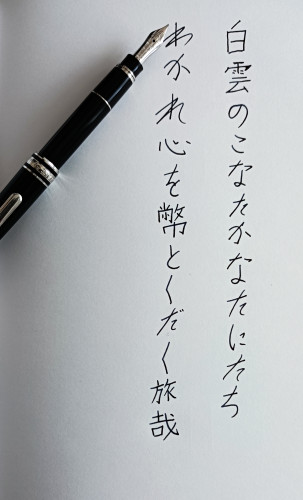 白雲のこなたかなたにたち
わかれ心を幣とくだく旅哉